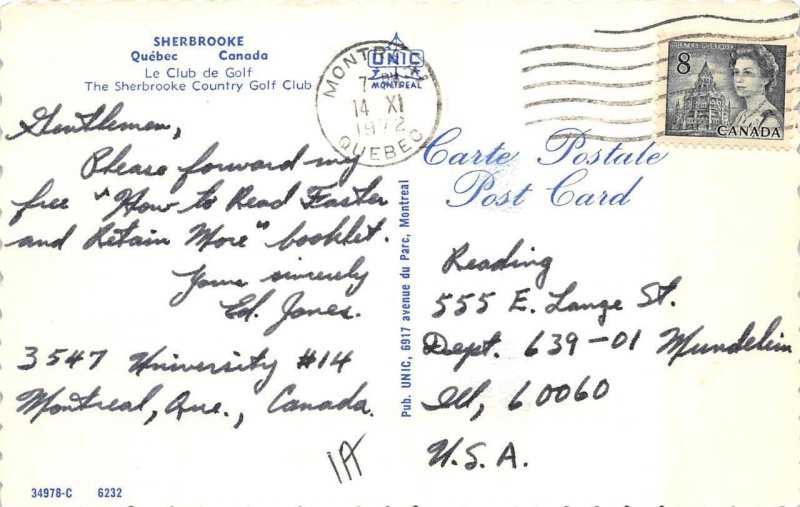 SHERBROOKE
Québec Canada
Le Club de Golf
The Sherbrooke Country Golf Club
UNIC
MONTREAL
MONTREAL
14 XI
1972
QUEBEC
POSTES POSTAGE
8
CANADA
Carte Postale
Post Card
Gentlemen,
Please forward my
free "How to Read Faster
and Retain More" booklet.
Yours sincerely
Ed. Jones.
3547 University #14
Montreal, Que., Canada.
1A
Pub. UNIC, 6917 avenue du Parc, Montreal
Reading
555 E. Lange St.
Dept. 639-01 Mundelein
Ill, 60060
U.S.A.
34978-C 6232